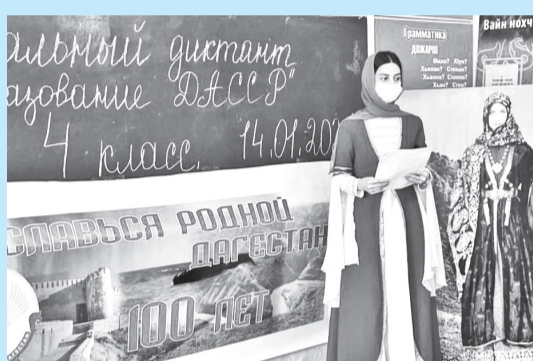 альный диктант
азование ДАССР"
4 класс. 14.01.202
Грамматика
ДОЖАРШ
Мила? Хӏун?
Хьенан? Стенан?
Хьанна? Стенна?
Хьан? Стен?
Вайн нохч
СЛАВЬСЯ РОДНОЙ
ДАГЕСТАН
100 ЛЕТ